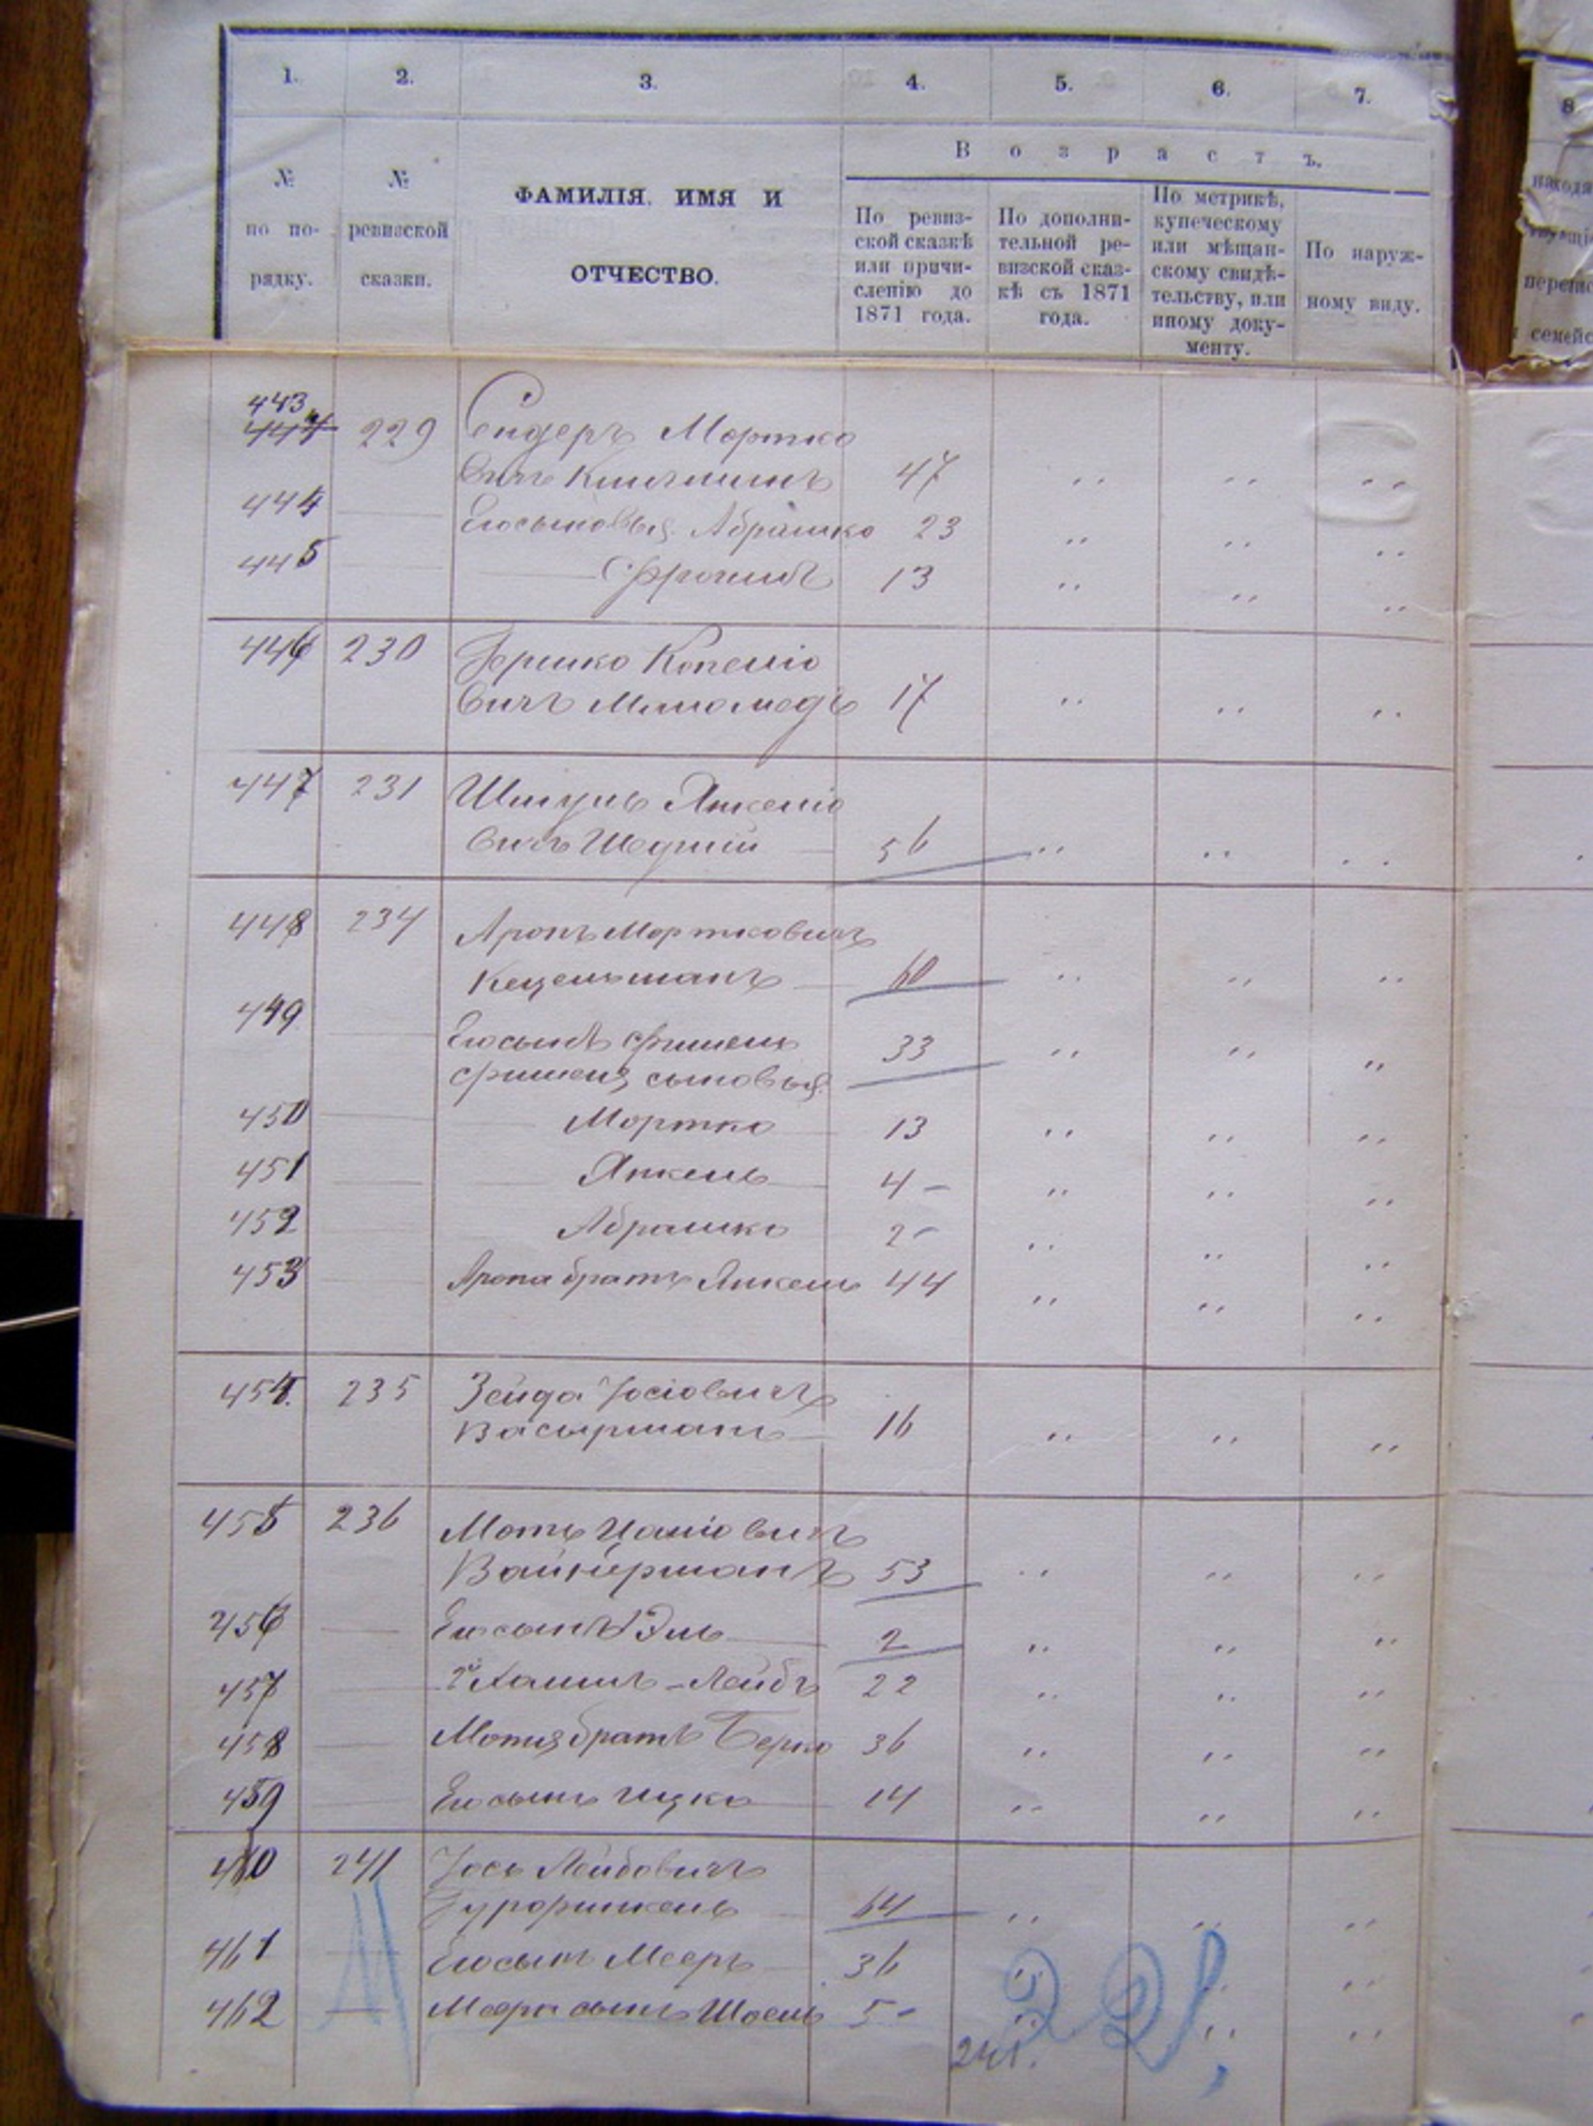 1. 2. 3. 4. 5. 6. 7.
8
В о з р а с т ъ.
№ по по-рядку.
№ ревизской сказки.
ФАМИЛІЯ, ИМЯ И
ОТЧЕСТВО.
По ревиз-
ской сказкѣ
или причи-
сленію до
1871 года.
По дополни-
тельной ре-
визской сказ-
кѣ съ 1871
года.
По метрикѣ,
купеческому
или мѣщан-
скому свидѣ-
тельству, или
иному доку-
менту.
По наруж-
ному виду.
443
229 Сендеръ Мортко
вичъ 47
444 Его сыновья Абрашко 23
445 Фроимъ 13
446 230 Гершко Копелio
вичъ 17
447 231 Шмуль Янкелio
вичъ 56
448 234 Аронъ Мортковичъ
Кецельманъ 60
449 Его сынъ Фишель 33
Фишеля сыновья
450 Мортко 13
451 Янкель 4 –
452 Абрашко 2 –
453 Арона братъ Янкель 44
454. 235 Зейда Іосіовичъ
Васерманъ 16
455 236 Мотя
Вайнерманъ 53
456 Его сынъ 1й Эль 2
457 2й Хаимъ-Лейбъ 22
458 Мотя братъ Берко 36
459 Его сынъ Ицко 14
460 241 Іось Лейбовичъ
64
461 Его сынъ Мееръ 36
462 Меера сынъ Шоель 5 –
241.